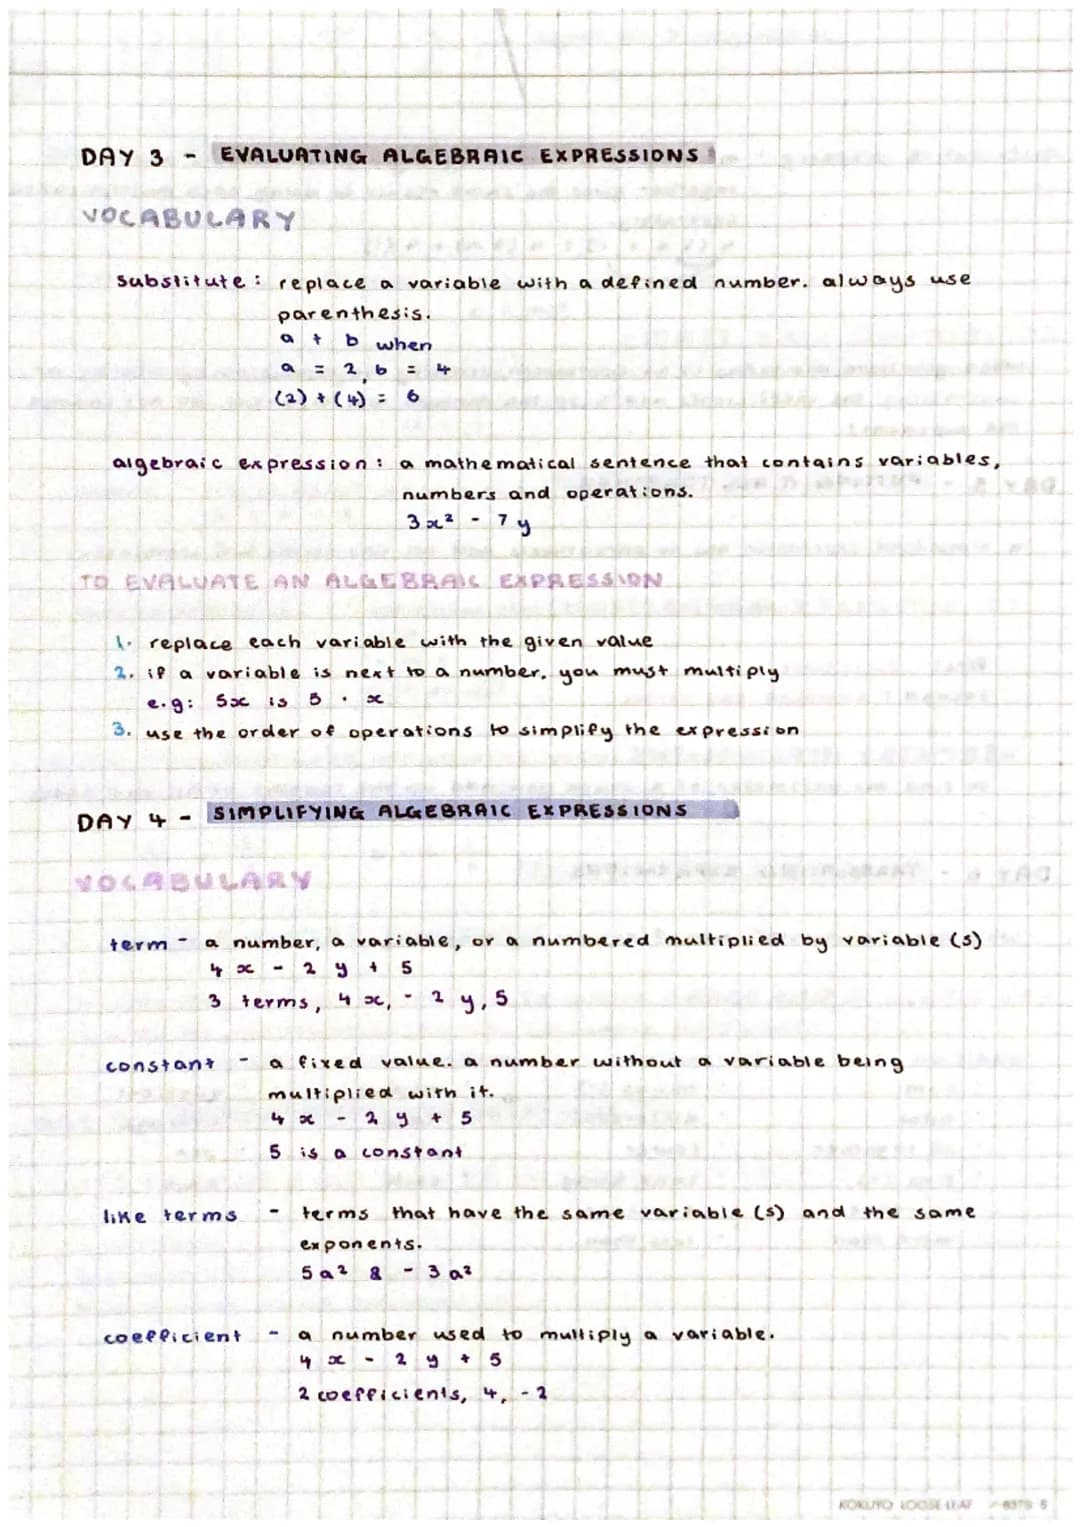 DAY 3 - EVALUATING ALGEBRAIC EXPRESSIONS
VOCABULARY
substitute: replace a variable with a defined number. always use
parenthesis.
a + b when
a = 2, b = 4
(2) + (4) = 6
algebraic expression: a mathematical sentence that contains variables,
numbers and operations.
3x² - 7y
TO EVALUATE AN ALGEBRAIC EXPRESSION
1. replace each variable with the given value
2. if a variable is next to a number, you must multiply
e.g: 5x is 5 · x
3. use the order of operations to simplify the expression
DAY 4 - SIMPLIFYING ALGEBRAIC EXPRESSIONS
VOCABULARY
term - a number, a variable, or a numbered multiplied by variable (s)
4x - 2y + 5
3 terms, 4x, -2y, 5
constant - a fixed value. a number without a variable being
multiplied with it.
4x - 2y + 5
5 is a constant
like terms - terms that have the same variable (s) and the same
exponents.
5a² & -3a²
coefficient - a number used to multiply a variable.
4x - 2y + 5
2 coefficients, 4, -2
KOKUYO LOOSE LEAF